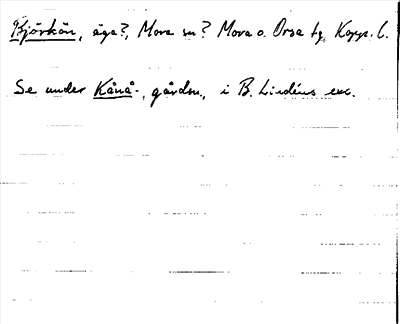 Björkön, äga?, Mora sn? Mora o. Orsa tg, Kopp. l.
Se under Kånå-, gårdsn., i B. Lindéns exc.